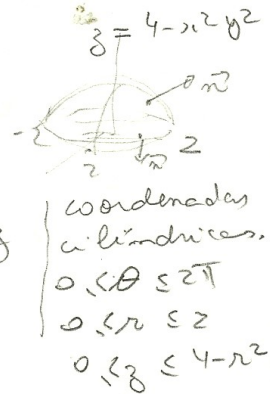 z = 4-x² y²
n⃗
-2
2
2
n⃗
coordenadas
cilíndricas.
0 ≤ θ ≤ 2π
0 ≤ r ≤ 2
0 ≤ z ≤ 4-r²